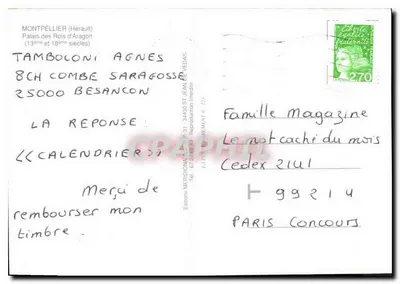 MONTPELLIER (Hérault)
Palais des Rois d'Aragon
(13ème et 18ème siècles)
TAMBOLONI AGNES
8CH COMBE SARAGOSSE
25000 BESANCON
LA REPONSE:
<<CALENDRIER>>
Merçi de
rembourser mon
timbre.
2,70
Famille Magazine
Le mot caché du mois
Cedex 2141
99214
PARIS CONCOURS